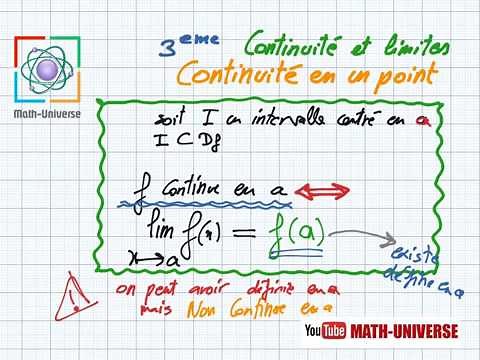 3eme Continuité et limites
Continuité en un point
Math-Universe
soit I un intervalle centré en a
I ⊂ Df
f continue en a ⟺
lim f(x) = f(a)
x→a
existe
définie en a
on peut avoir définie en a
mais Non Continue en a
YouTube MATH-UNIVERSE